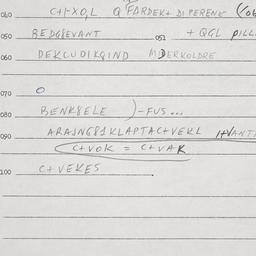 040 C+I-XOL Q FARDEK+ DIPERENE (
050 BEDGBEVANT 051 + QGL PILL
060 DEKCUDIKQIND MDERKOLDRE
070 O
080 BENK8ELE )-FUS...
090 ARAJNG81KLAPTAC+VEKL
C+VOK = C+VAK
100 C+VEKES